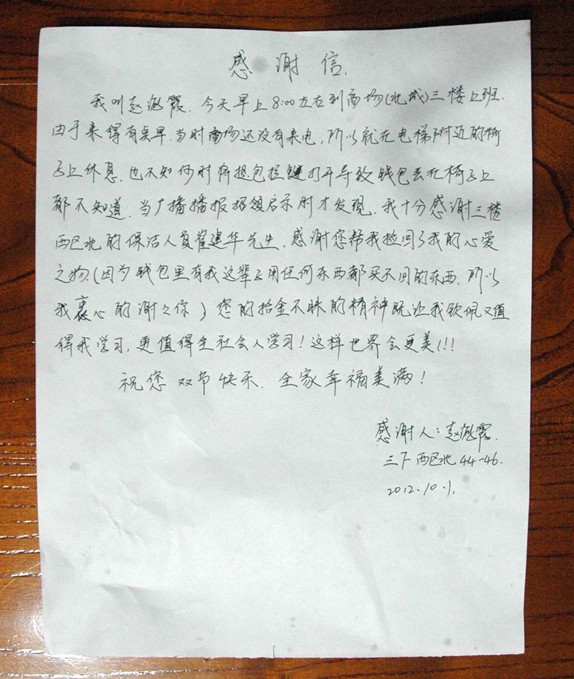 感谢信.
我叫赵淑霞. 今天早上8:00左右到商场(北城)三楼上班.
由于来得有点早. 当时商场还没有来电, 所以就在电梯附近的椅
子上休息. 也不知何时将提包拉链打开导致钱包丢在椅子上
都不知道. 当广播播报招领启示时才发现. 我十分感谢三楼
西区北的保洁人员翟建华先生. 感谢您帮我捡回了我的心爱
之物(因为钱包里有我这辈子用任何东西都买不回的东西. 所以
我衷心的谢谢你) 您的拾金不昧的精神既让我钦佩又值
得我学习, 更值得全社会人学习! 这样世界会更美!!!
祝您双节快乐. 全家幸福美满!
感谢人: 赵淑霞.
三下西区北44-46.
2012.10.1.